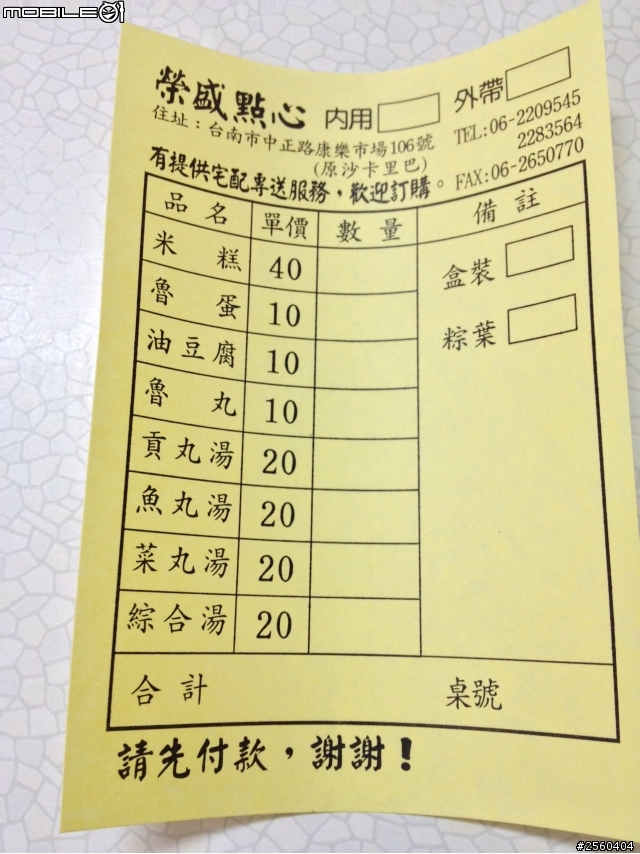 mobile01
榮盛點心 內用 外帶
住址：台南市中正路康樂市場106號
(原沙卡里巴)
TEL:06-2209545
2283564
FAX:06-2650770
有提供宅配專送服務，歡迎訂購。
品名 單價 數量 備註
米糕 40
魯蛋 10
油豆腐 10
魯丸 10
貢丸湯 20
魚丸湯 20
菜丸湯 20
綜合湯 20
盒裝
粽葉
合計 桌號
請先付款，謝謝！
#2560404